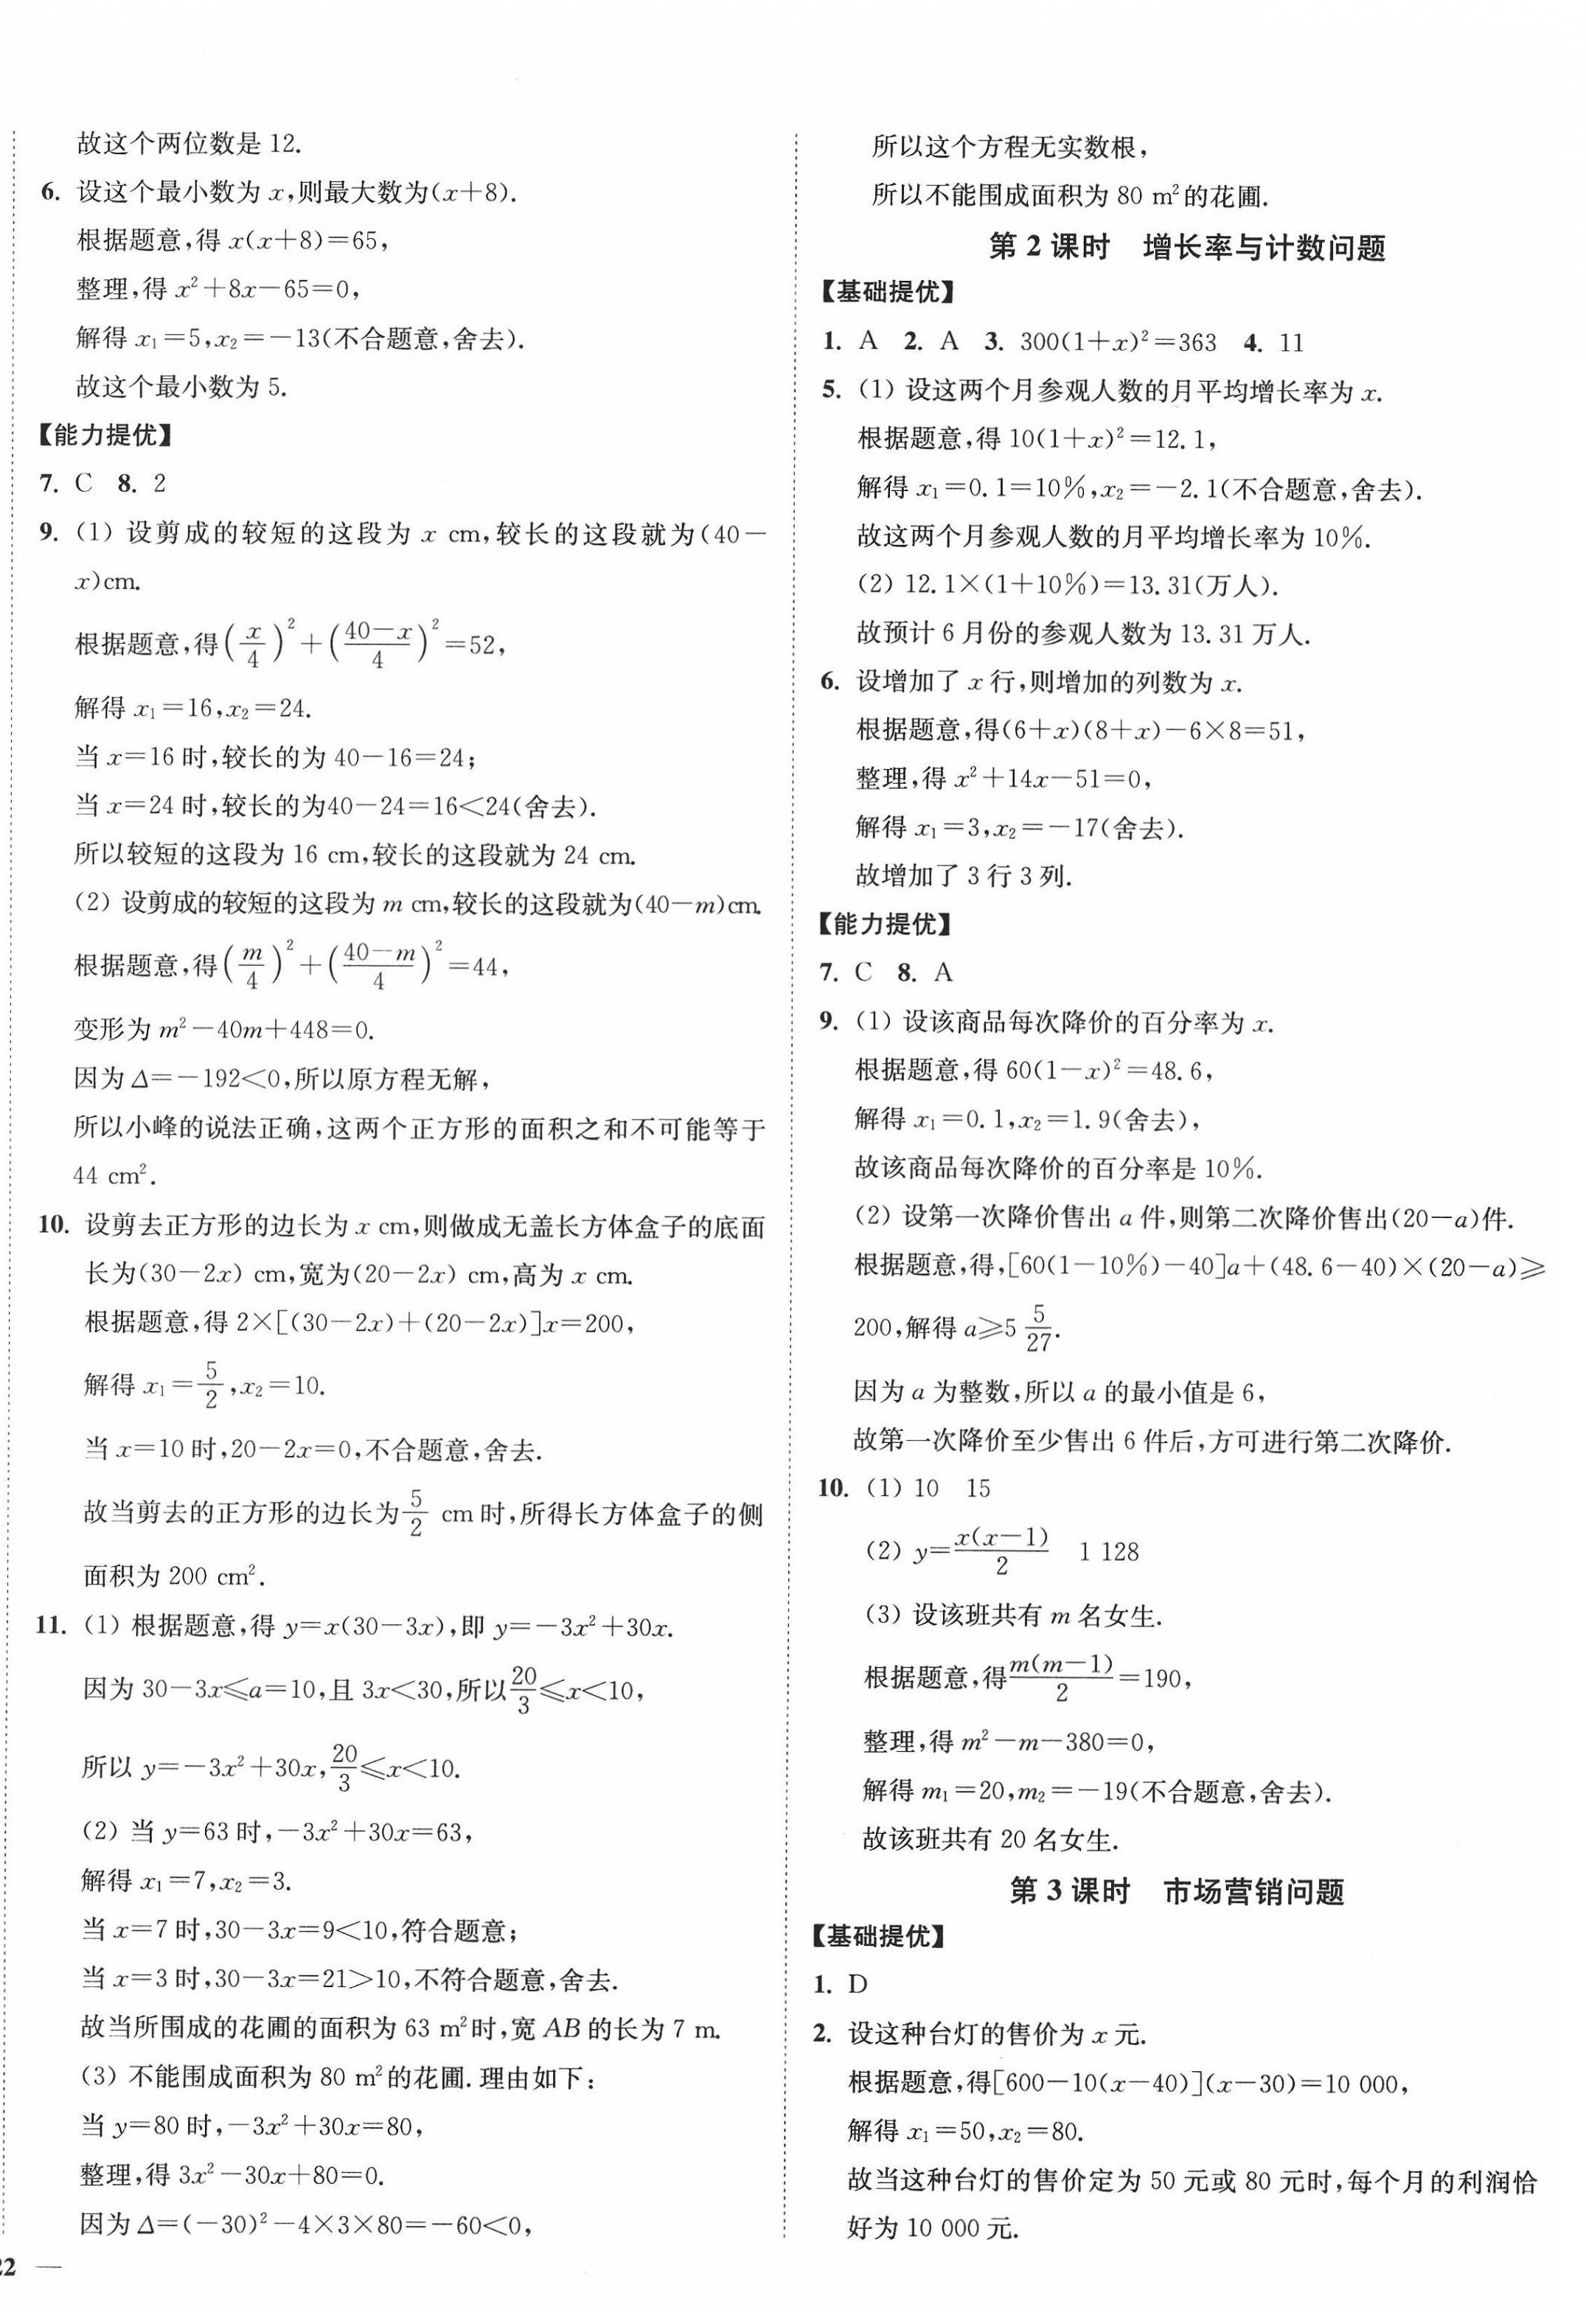 故这个两位数是 12.
6. 设这个最小数为 x,则最大数为(x+8).
根据题意,得 x(x+8)=65,
整理,得 x²+8x-65=0,
解得 x₁=5,x₂=-13(不合题意,舍去).
故这个最小数为 5.
【能力提优】
7. C 8. 2
9. (1) 设剪成的较短的这段为 x cm,较长的这段就为(40-
x)cm.
根据题意,得(x/4)²+((40-x)/4)²=52,
解得 x₁=16,x₂=24.
当 x=16 时,较长的为 40-16=24;
当 x=24 时,较长的为40-24=16<24(舍去).
所以较短的这段为 16 cm,较长的这段就为 24 cm.
(2) 设剪成的较短的这段为 m cm,较长的这段就为(40-m)cm.
根据题意,得(m/4)²+((40-m)/4)²=44,
变形为 m²-40m+448=0.
因为 Δ=-192<0,所以原方程无解,
所以小峰的说法正确,这两个正方形的面积之和不可能等于
44 cm².
10. 设剪去正方形的边长为 x cm,则做成无盖长方体盒子的底面
长为(30-2x) cm,宽为(20-2x) cm,高为 x cm.
根据题意,得 2×[(30-2x)+(20-2x)]x=200,
解得 x₁=5/2,x₂=10.
当 x=10 时,20-2x=0,不合题意,舍去.
故当剪去的正方形的边长为5/2 cm 时,所得长方体盒子的侧
面积为 200 cm².
11. (1) 根据题意,得 y=x(30-3x),即 y=-3x²+30x.
因为 30-3x⩽a=10,且 3x<30,所以20/3⩽x<10,
所以 y=-3x²+30x,20/3⩽x<10.
(2) 当 y=63 时,-3x²+30x=63,
解得 x₁=7,x₂=3.
当 x=7 时,30-3x=9<10,符合题意;
当 x=3 时,30-3x=21>10,不符合题意,舍去.
故当所围成的花圃的面积为 63 m²时,宽 AB 的长为 7 m.
(3) 不能围成面积为 80 m²的花圃.理由如下:
当 y=80 时,-3x²+30x=80,
整理,得 3x²-30x+80=0.
因为 Δ=(-30)²-4×3×80=-60<0,
22 —
所以这个方程无实数根,
所以不能围成面积为 80 m²的花圃.
第 2 课时 增长率与计数问题
【基础提优】
1. A 2. A 3. 300(1+x)²=363 4. 11
5. (1) 设这两个月参观人数的月平均增长率为 x.
根据题意,得 10(1+x)²=12.1,
解得 x₁=0.1=10%,x₂=-2.1(不合题意,舍去).
故这两个月参观人数的月平均增长率为 10%.
(2) 12.1×(1+10%)=13.31(万人).
故预计 6 月份的参观人数为 13.31 万人.
6. 设增加了 x 行,则增加的列数为 x.
根据题意,得(6+x)(8+x)-6×8=51,
整理,得 x²+14x-51=0,
解得 x₁=3,x₂=-17(舍去).
故增加了 3 行 3 列.
【能力提优】
7. C 8. A
9. (1) 设该商品每次降价的百分率为 x.
根据题意,得 60(1-x)²=48.6,
解得 x₁=0.1,x₂=1.9(舍去),
故该商品每次降价的百分率是 10%.
(2) 设第一次降价售出 a 件,则第二次降价售出(20-a)件.
根据题意,得,[60(1-10%)-40]a+(48.6-40)×(20-a)⩾
200,解得 a⩾5 5/27.
因为 a 为整数,所以 a 的最小值是 6,
故第一次降价至少售出 6 件后,方可进行第二次降价.
10. (1) 10 15
(2) y=x(x-1)/2 1 128
(3) 设该班共有 m 名女生.
根据题意,得m(m-1)/2=190,
整理,得 m²-m-380=0,
解得 m₁=20,m₂=-19(不合题意,舍去).
故该班共有 20 名女生.
第 3 课时 市场营销问题
【基础提优】
1. D
2. 设这种台灯的售价为 x 元.
根据题意,得[600-10(x-40)](x-30)=10 000,
解得 x₁=50,x₂=80.
故当这种台灯的售价定为 50 元或 80 元时,每个月的利润恰
好为 10 000 元.